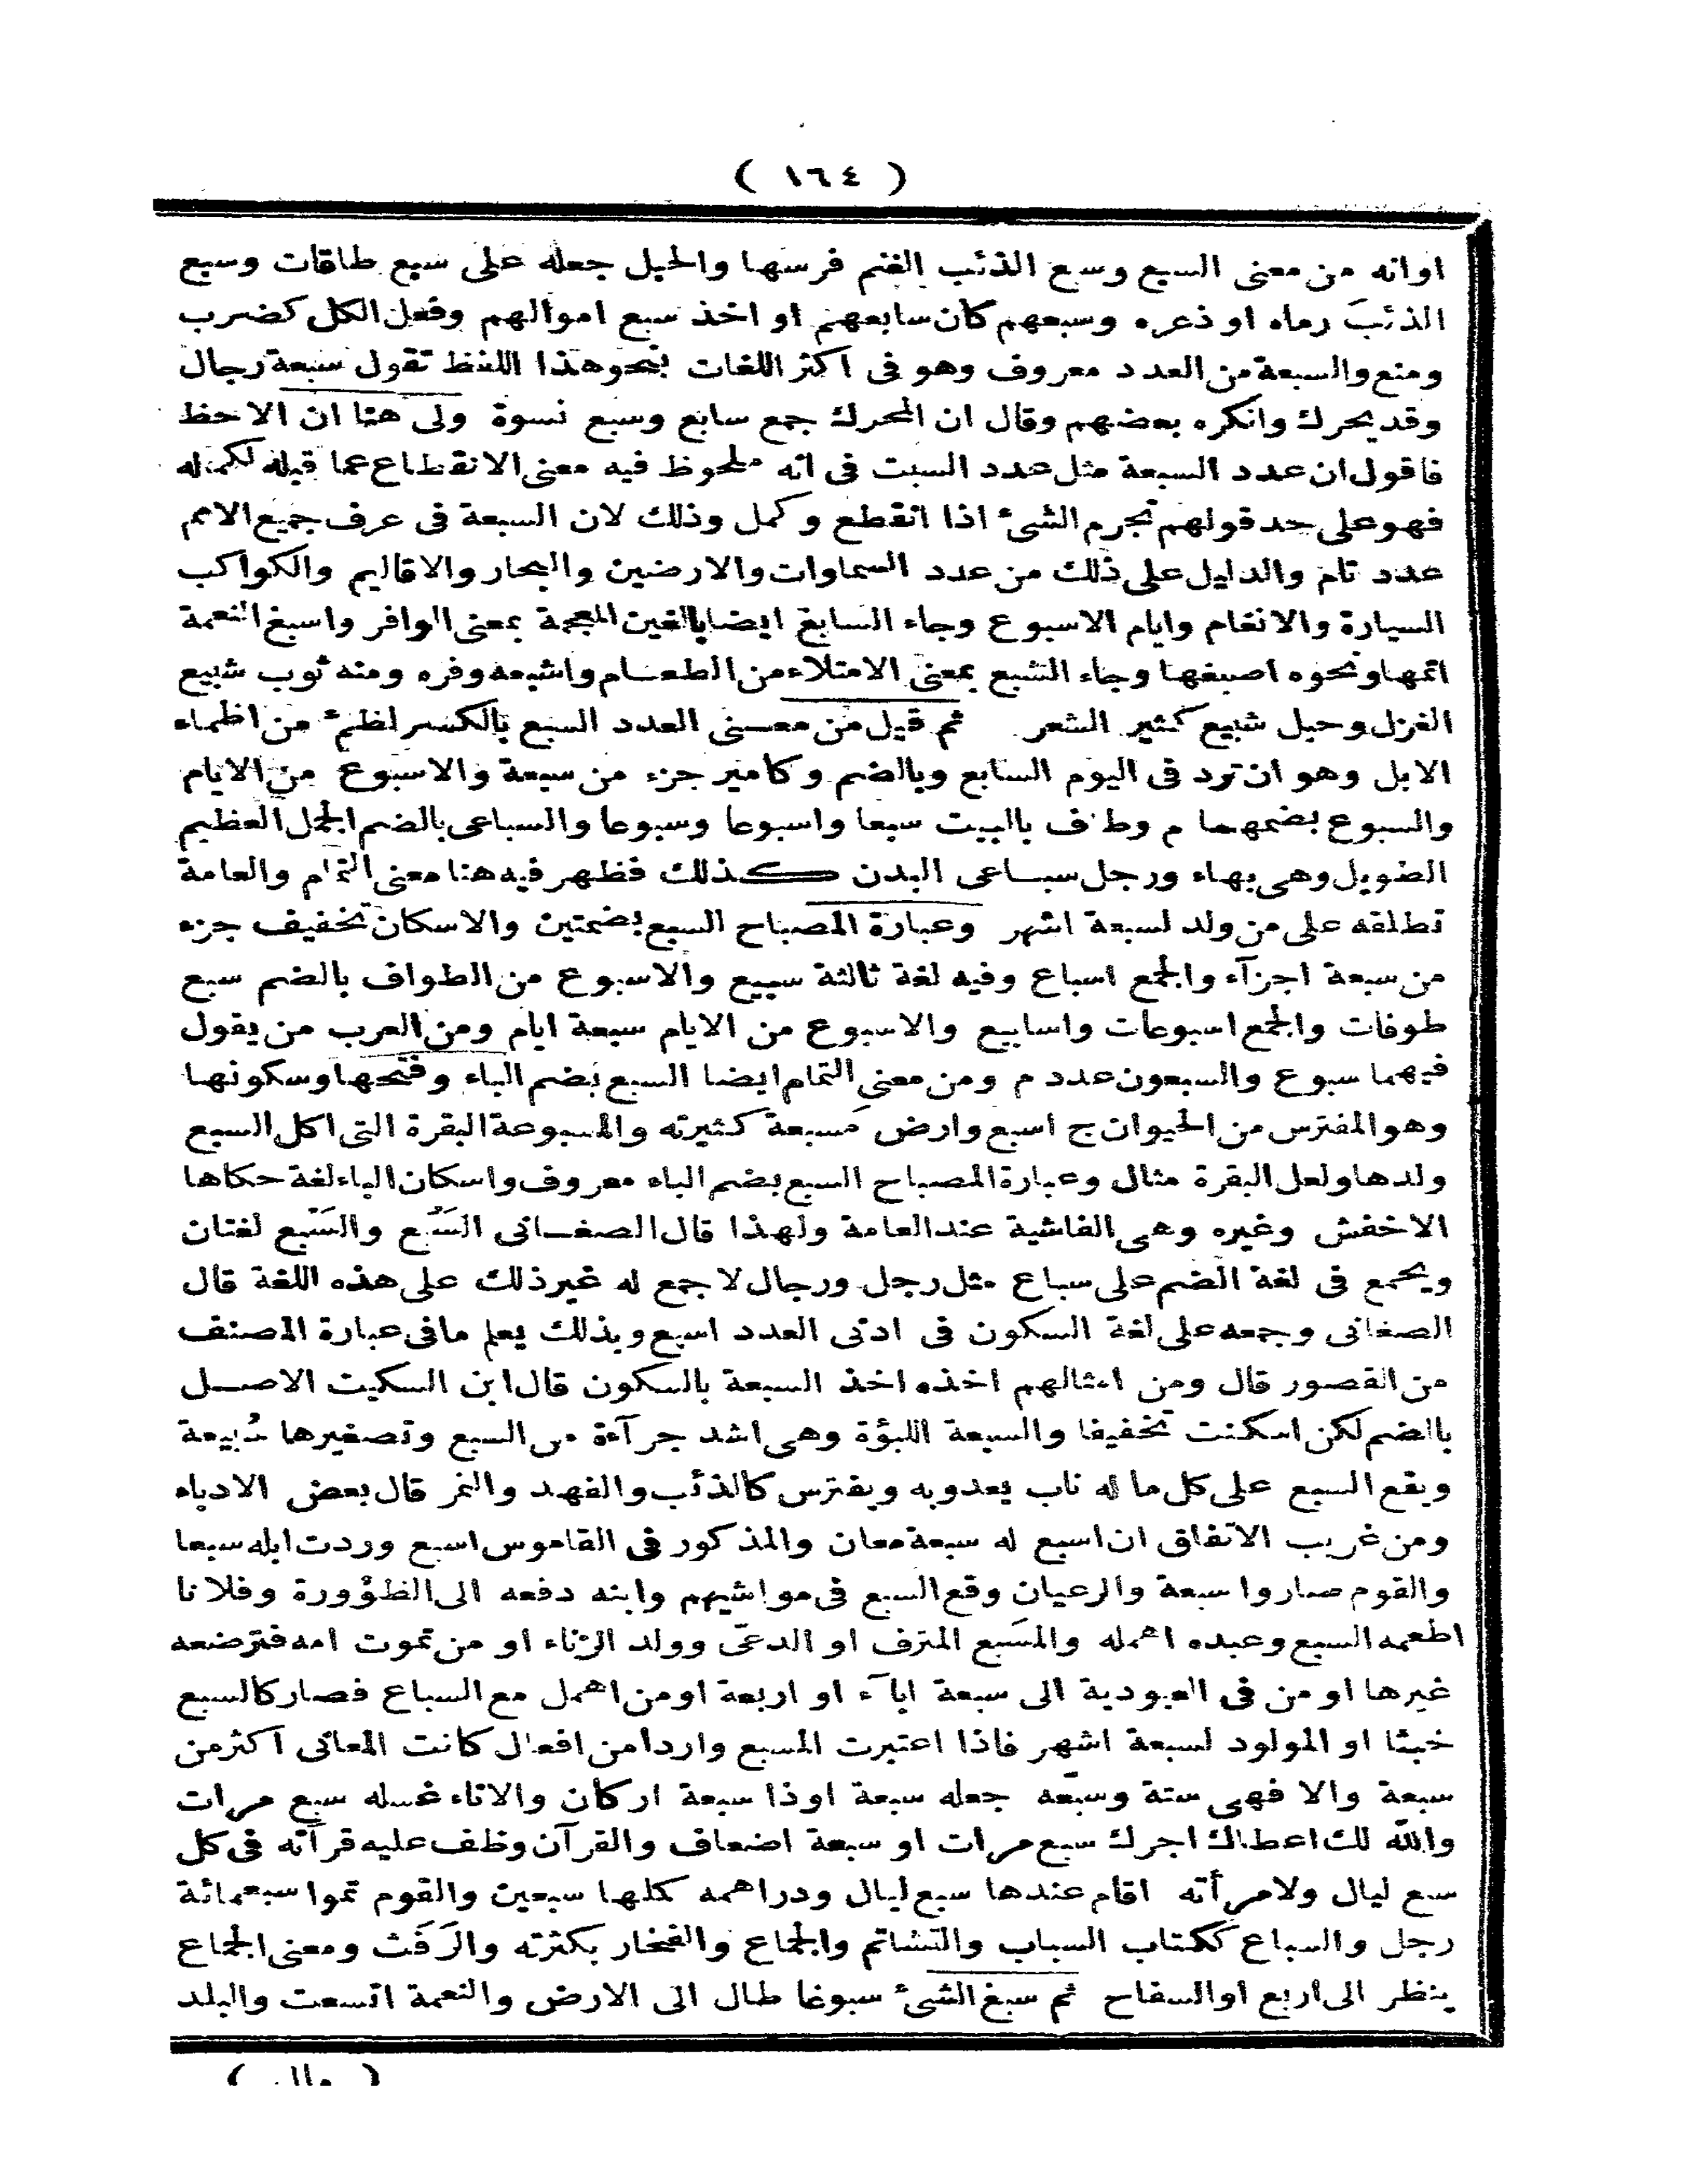 ( ١٦٤ )
اوانه من معنى السبع وسبع الذئب الغنم فرسها والحبل جعله على سبع طاقات وسبع
الذئبَ رماه او ذعره وسبعهم كان سابعهم او اخذ سبع اموالهم وفعل الكل كضرب
ومنع والسبعة من العدد معروف وهو فى اكثر اللغات بنحو هذا اللفظ تقول سبعة رجال
وقد يحرك وانكره بعضهم وقال ان المحرك جمع سابع وسبع نسوة ولى هنا ان الاحظ
فاقول ان عدد السبعة مثل عدد السبت فى انه ملحوظ فيه معنى الانقطاع عما قبله لكمله
فهو على حد قولهم تجرم الشئ اذا انقطع وكمل وذلك لان السبعة فى عرف جميع الامم
عدد تام والدليل على ذلك من عدد السماوات والارضين والبحار والاقاليم والكواكب
السيارة والانغام وايام الاسبوع وجاء السابغ ايضا بالغين المعجمة بمعنى الوافر واسبغ النعمة
اتمها ونحوه اصبغها وجاء الشبع بمعنى الامتلاء من الطعام واشبعه وفره ومنه ثوب شبيع
الغزل وحبل شبيع كثير الشعر ثم قيل من معنى العدد السبع بالكسر لظمء من اظماء
الابل وهو ان ترد فى اليوم السابع وبالضم وكامير جزء من سبعة والاسبوع من الايام
والسبوع بضمهما م وطاف بالبيت سبعا واسبوعا وسبوعا والسباعى بالضم الجمل العظيم
الطويل وهى بهاء ورجل سباعى البدن كذلك فظهر فيه هنا معنى التمام والعامة
تطلقه على من ولد لسبعة اشهر وعبارة المصباح السبع بضمتين والاسكان تخفيف جزء
من سبعة اجزآء والجمع اسباع وفيه لغة ثالثة سبيع والاسبوع من الطواف بالضم سبع
طوفات والجمع اسبوعات واسابيع والاسبوع من الايام سبعة ايام ومن العرب من يقول
فيهما سبوع والسبعون عدد م ومن معنى التمام ايضا السبع بضم الباء وفتحها وسكونها
وهو المفترس من الحيوان ج اسبع وارض مَسبعة كثيرته والمسبوعة البقرة التى اكل السبع
ولدها ولعل البقرة مثال وعبارة المصباح السبع بضم الباء معروف واسكان الباء لغة حكاها
الاخفش وغيره وهى الفاشية عند العامة ولهذا قال الصغانى السَبُع والسَبْع لغتان
ويجمع فى لغة الضم على سباع مثل رجل ورجال لا جمع له غير ذلك على هذه اللغة قال
الصغانى وجمعه على لغة السكون فى ادنى العدد اسبع وبذلك يعلم ما فى عبارة المصنف
من القصور قال ومن امثالهم اخذه اخذ السبعة بالسكون قال ابن السكيت الاصل
بالضم لكن اسكنت تخفيفا والسبعة اللبؤة وهى اشد جرآءة من السبع وتصغيرها سُبيعة
ويقع السبع على كل ما له ناب يعدو به ويفترس كالذئب والفهد والنمر قال بعض الادباء
ومن غريب الاتفاق ان اسبع له سبعة معان والمذكور فى القاموس اسبع وردت ابله سبعا
والقوم صاروا سبعة والرعيان وقع السبع فى مواشيهم وابنه دفعه الى الظؤورة وفلانا
اطعمه السبع وعبده اهمله والمسَبع المترف او الدعىّ وولد الزناء او من تموت امه فترضعه
غيرها او من فى العبودية الى سبعة اباآء او اربعة او من اهمل مع السباع فصار كالسبع
خبثا او المولود لسبعة اشهر فاذا اعتبرت المسبع واردا من افعال كانت المعانى اكثر من
سبعة والا فهى ستة وسبّعه جعله سبعة اوذا سبعة اركان والاناء غسله سبع مرات
والله لك اعطاك اجرك سبع مرات او سبعة اضعاف والقرآن وظف عليه قرآته فى كل
سبع ليال ولامرأته اقام عندها سبع ليال ودراهمه كلها سبعين والقوم تموا سبعمائة
رجل والسباع ككتاب السباب والتشاتم والجماع والفخار بكثرته والرَفَث ومعنى الجماع
ينظر الى اربع او السفاح ثم سبغ الشئ سبوغا طال الى الارض والنعمة اتسعت والبلد